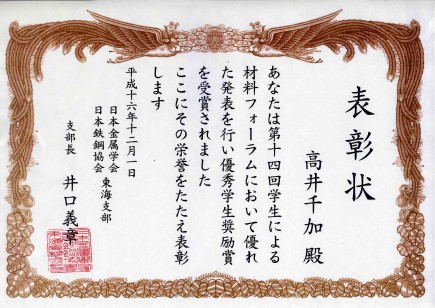 表彰状
高井千加 殿
あなたは第十四回学生による
材料フォーラムにおいて優れ
た発表を行い優秀学生奨励賞
を受賞されました
ここにその栄誉をたたえ表彰
します
平成十六年十二月一日
日本金属学会
日本鉄鋼協会 東海支部
支部長 井口義章